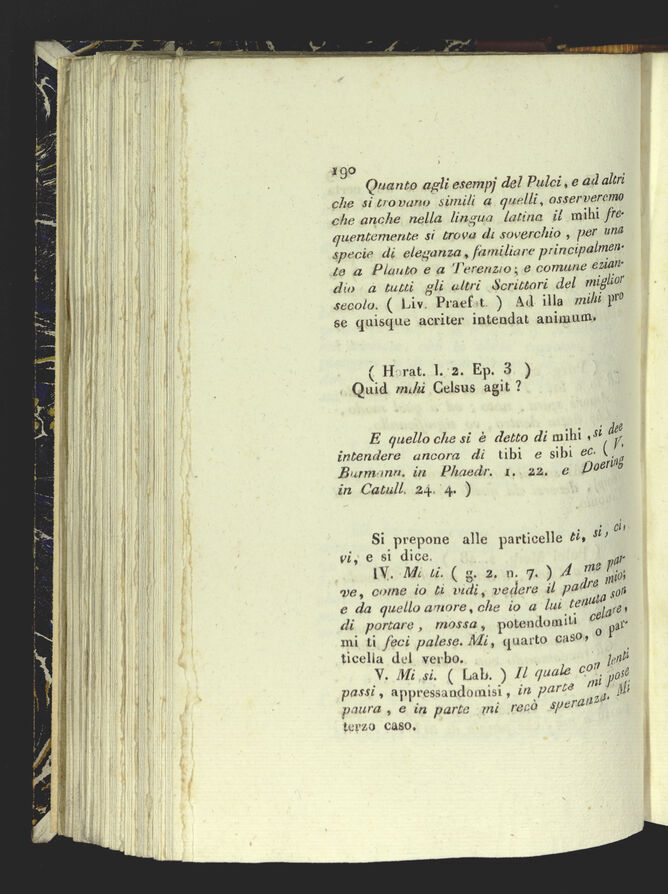 190
Quanto agli esempj del Pulci, e ad altri
che si trovano simili a quelli, osserveremo
che anche nella lingua latina il mihi fre-
quentemente si trova di soverchio, per una
specie di eleganza, familiare principalmen-
te a Plauto e a Terenzio; e comune ezian-
dio a tutti gli altri Scrittori del miglior
secolo. ( Liv. Praefat. ) Ad illa mihi pro
se quisque acriter intendat animum.
( Horat. l. 2. Ep. 3 )
Quid mihi Celsus agit ?
E quello che si è detto di mihi, si dee
intendere ancora di tibi e sibi ec. ( V.
Burmann. in Phaedr. 1. 22. e Doering
in Catull. 24. 4. )
Si prepone alle particelle ti, si, ci,
vi, e si dice.
IV. Mi ti. ( g. 2. n. 7. ) A me par-
ve, come io ti vidi, vedere il padre mio;
e da quello amore, che io a lui tenuta son
di portare, mossa, potendomiti celare,
mi ti feci palese. Mi, quarto caso, o par-
ticella del verbo.
V. Mi si. ( Lab. ) Il quale con lenti
passi, appressandomisi, in parte mi pose
paura, e in parte mi recò speranza. Mi
terzo caso.